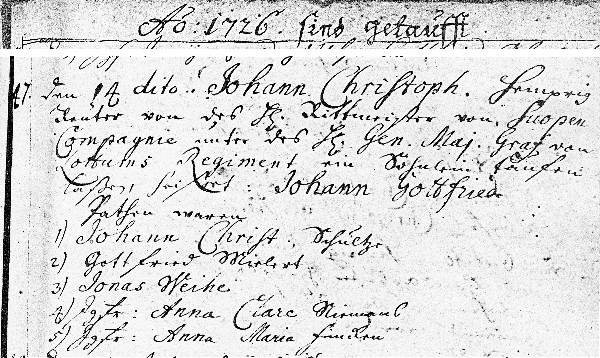 Ao: 1726. sind getaufft
47. den 14 dito: Johann Christoph. Hemprig
Reuter von des H. Rittmeister von Luopen
Compagnie unter des H. Gen. Maj. Graf von
Lottums Regiment ein Söhnlein tauffen
laßen, heißet: Johann Gottfried
Pathen waren
1) Johann Christ. Schultze
2) Gottfried Mielert
3) Jonas Weihe
4) Jgfr: Anna Clare Niemans
5) Jgfr: Anna Maria Fincken